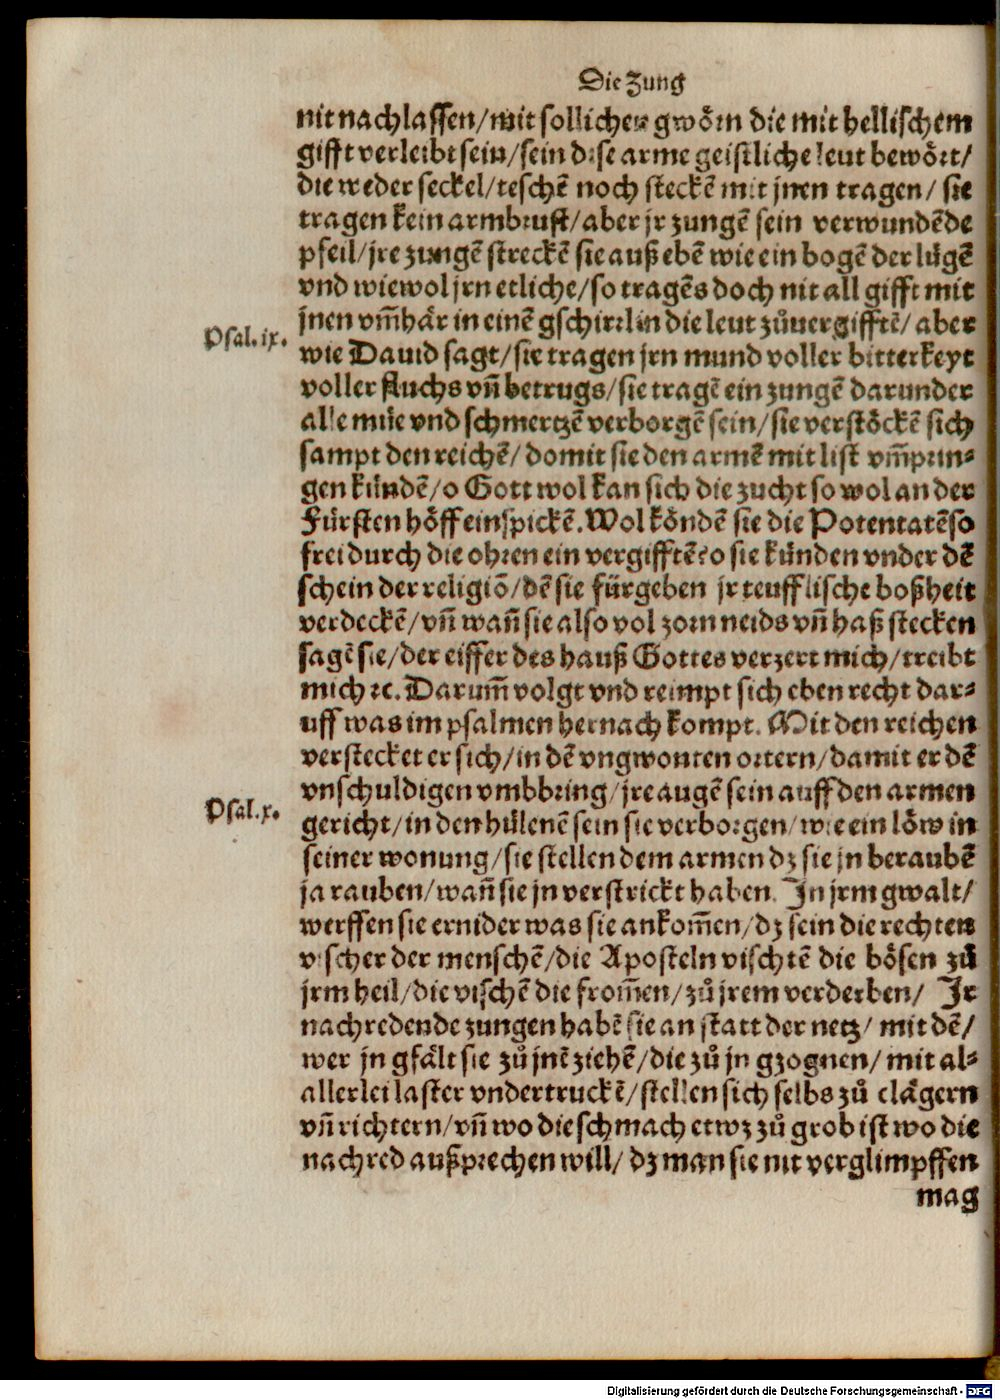 Die Zung
nit nachlassen/mit sollichen gwörn die mit hellischem
gifft verleibt sein/sein dise arme geistliche leut bewört/
die weder seckel/teschē noch steckē mit jnen tragen/ sie
tragen kein armbrust/aber jr zungē sein verwundēde
pfeil/jre zungē streckē sie auß ebē wie ein bogē der lügē
vnd wiewol jrn etliche/so tragēs doch nit all gifft mit
jnen vm̄här in einē gschirrlin die leut zůuergifftē/ aber
Psal.ix.
wie Dauid sagt/sie tragen jrn mund voller bitterkeyt
voller fluchs vn̄ betrugs/sie tragē ein zungē darunder
alle müe vnd schmertzē verborgē sein/sie verstöckē sich
sampt den reichē/domit sie den armē mit list vm̄prin-
gen kündē/o Gott wol kan sich die zucht so wol an der
Fürsten höff einspickē. Wol köndē sie die Potentatē so
frei durch die ohren ein vergifftē? o sie künden vnder dē
schein der religiō/dē sie fürgeben jr teufflische boßheit
verdeckē/vn̄ wan̄ sie also vol zorn neids vn̄ haß stecken
sagē sie/der eiffer des hauß Gottes verzert mich/treibt
mich ꝛc. Darum̄ volgt vnd reimpt sich eben recht dar-
uff was im psalmen hernach kompt. Mit den reichen
verstecket er sich/in dē vngwonten ortern/damit er dē
vnschuldigen vmbbring/jre augē sein auff den armen
Psal.x.
gericht/in den hülenē sein sie verborgen/wie ein löw in
seiner wonung/sie stellen dem armen dz sie jn beraubē
ja rauben/wan̄ sie jn verstrickt haben. In jrm gwalt/
werffen sie ernider was sie ankom̄en/dz sein die rechten
vischer der menschē/die Aposteln vischtē die bösen zů
jrm heil/die vischē die from̄en/zů jrem verderben/ Ir
nachredende zungen habē sie an statt der netz/ mit dē/
wer jn gfält sie zů jnē ziehē/die zů jn gzognen/ mit al-
allerlei laster vndertruckē/stellen sich selbs zů clägern
vn̄ richtern/vn̄ wo die schmach etwz zů grob ist wo die
nachred außprechen will/ dz man sie nit verglimpffen
mag
Digitalisierung gefördert durch die Deutsche Forschungsgemeinschaft - DFG